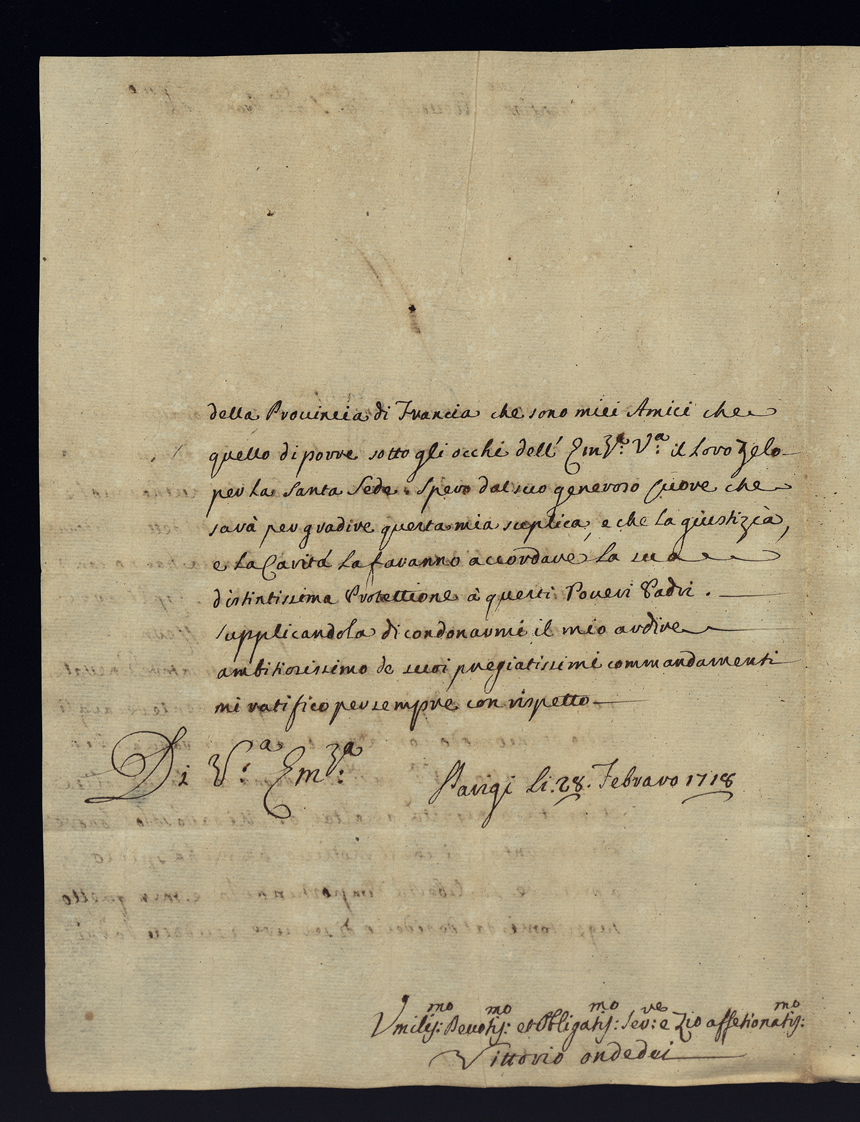 della Prouincia di Francia che sono miei Amici che
quello di porre sotto gli occhi dell' Em:za V:a il Loro Zelo
per La Santa Sede. Spero dal suo generoso Cuore che
sarà per gradire questa mia suplica, e che La giustizia,
e La Carità La faranno accordare La sua
distintissima Protettione à questi Poueri Padri.
supplicandola di condonarmi il mio ardire
ambitiosissimo de suoi pregiatissimi commandamenti
mi ratifico per sempre con rispetto
Di V:a Em:za
Parigi Li. 28. Febraro 1718
Vmilis:mo Deuotis:mo et Obligatis:mo Ser:ve e Zio affetionatis:mo
Vittorio ondedei